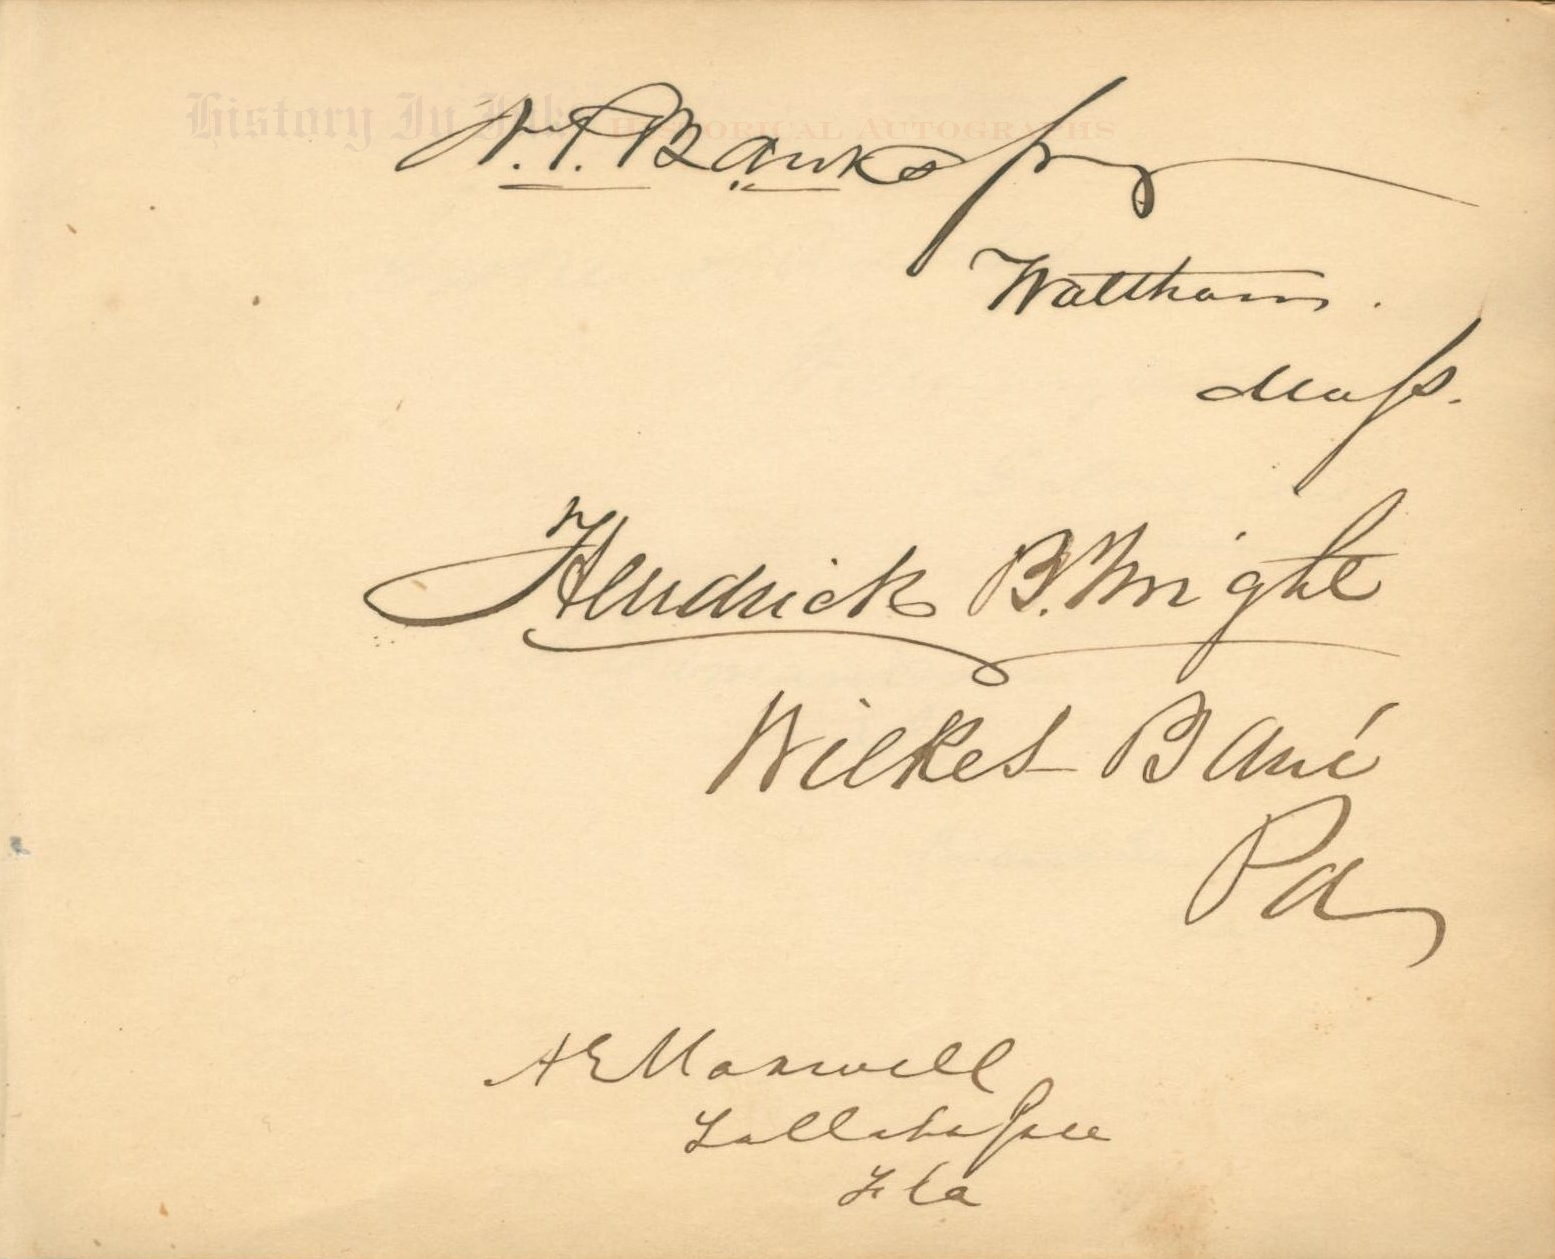 History In Ink Historical Autographs
N. P. Banks
Waltham.
Mass.
Hendrick B. Wright
Wilkes Barre
Pa
A E Maxwell
Tallahassee
Fla